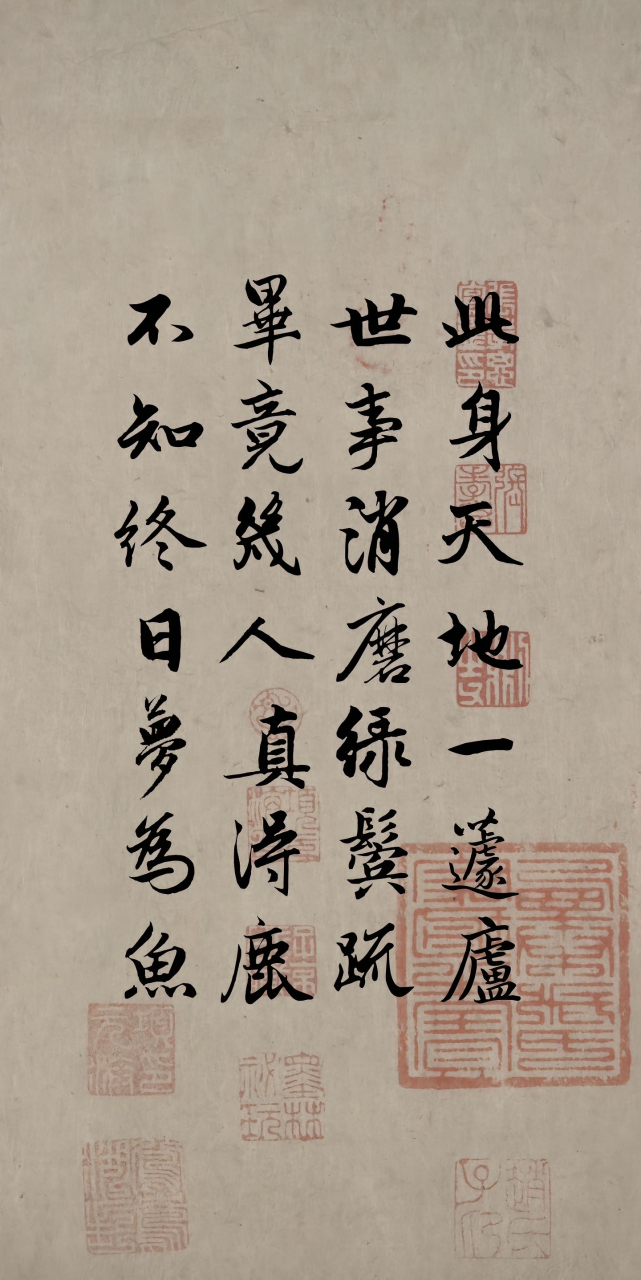 此身天地一蘧廬
世事消磨綠鬢疏
畢竟幾人真得鹿
不知終日夢為魚